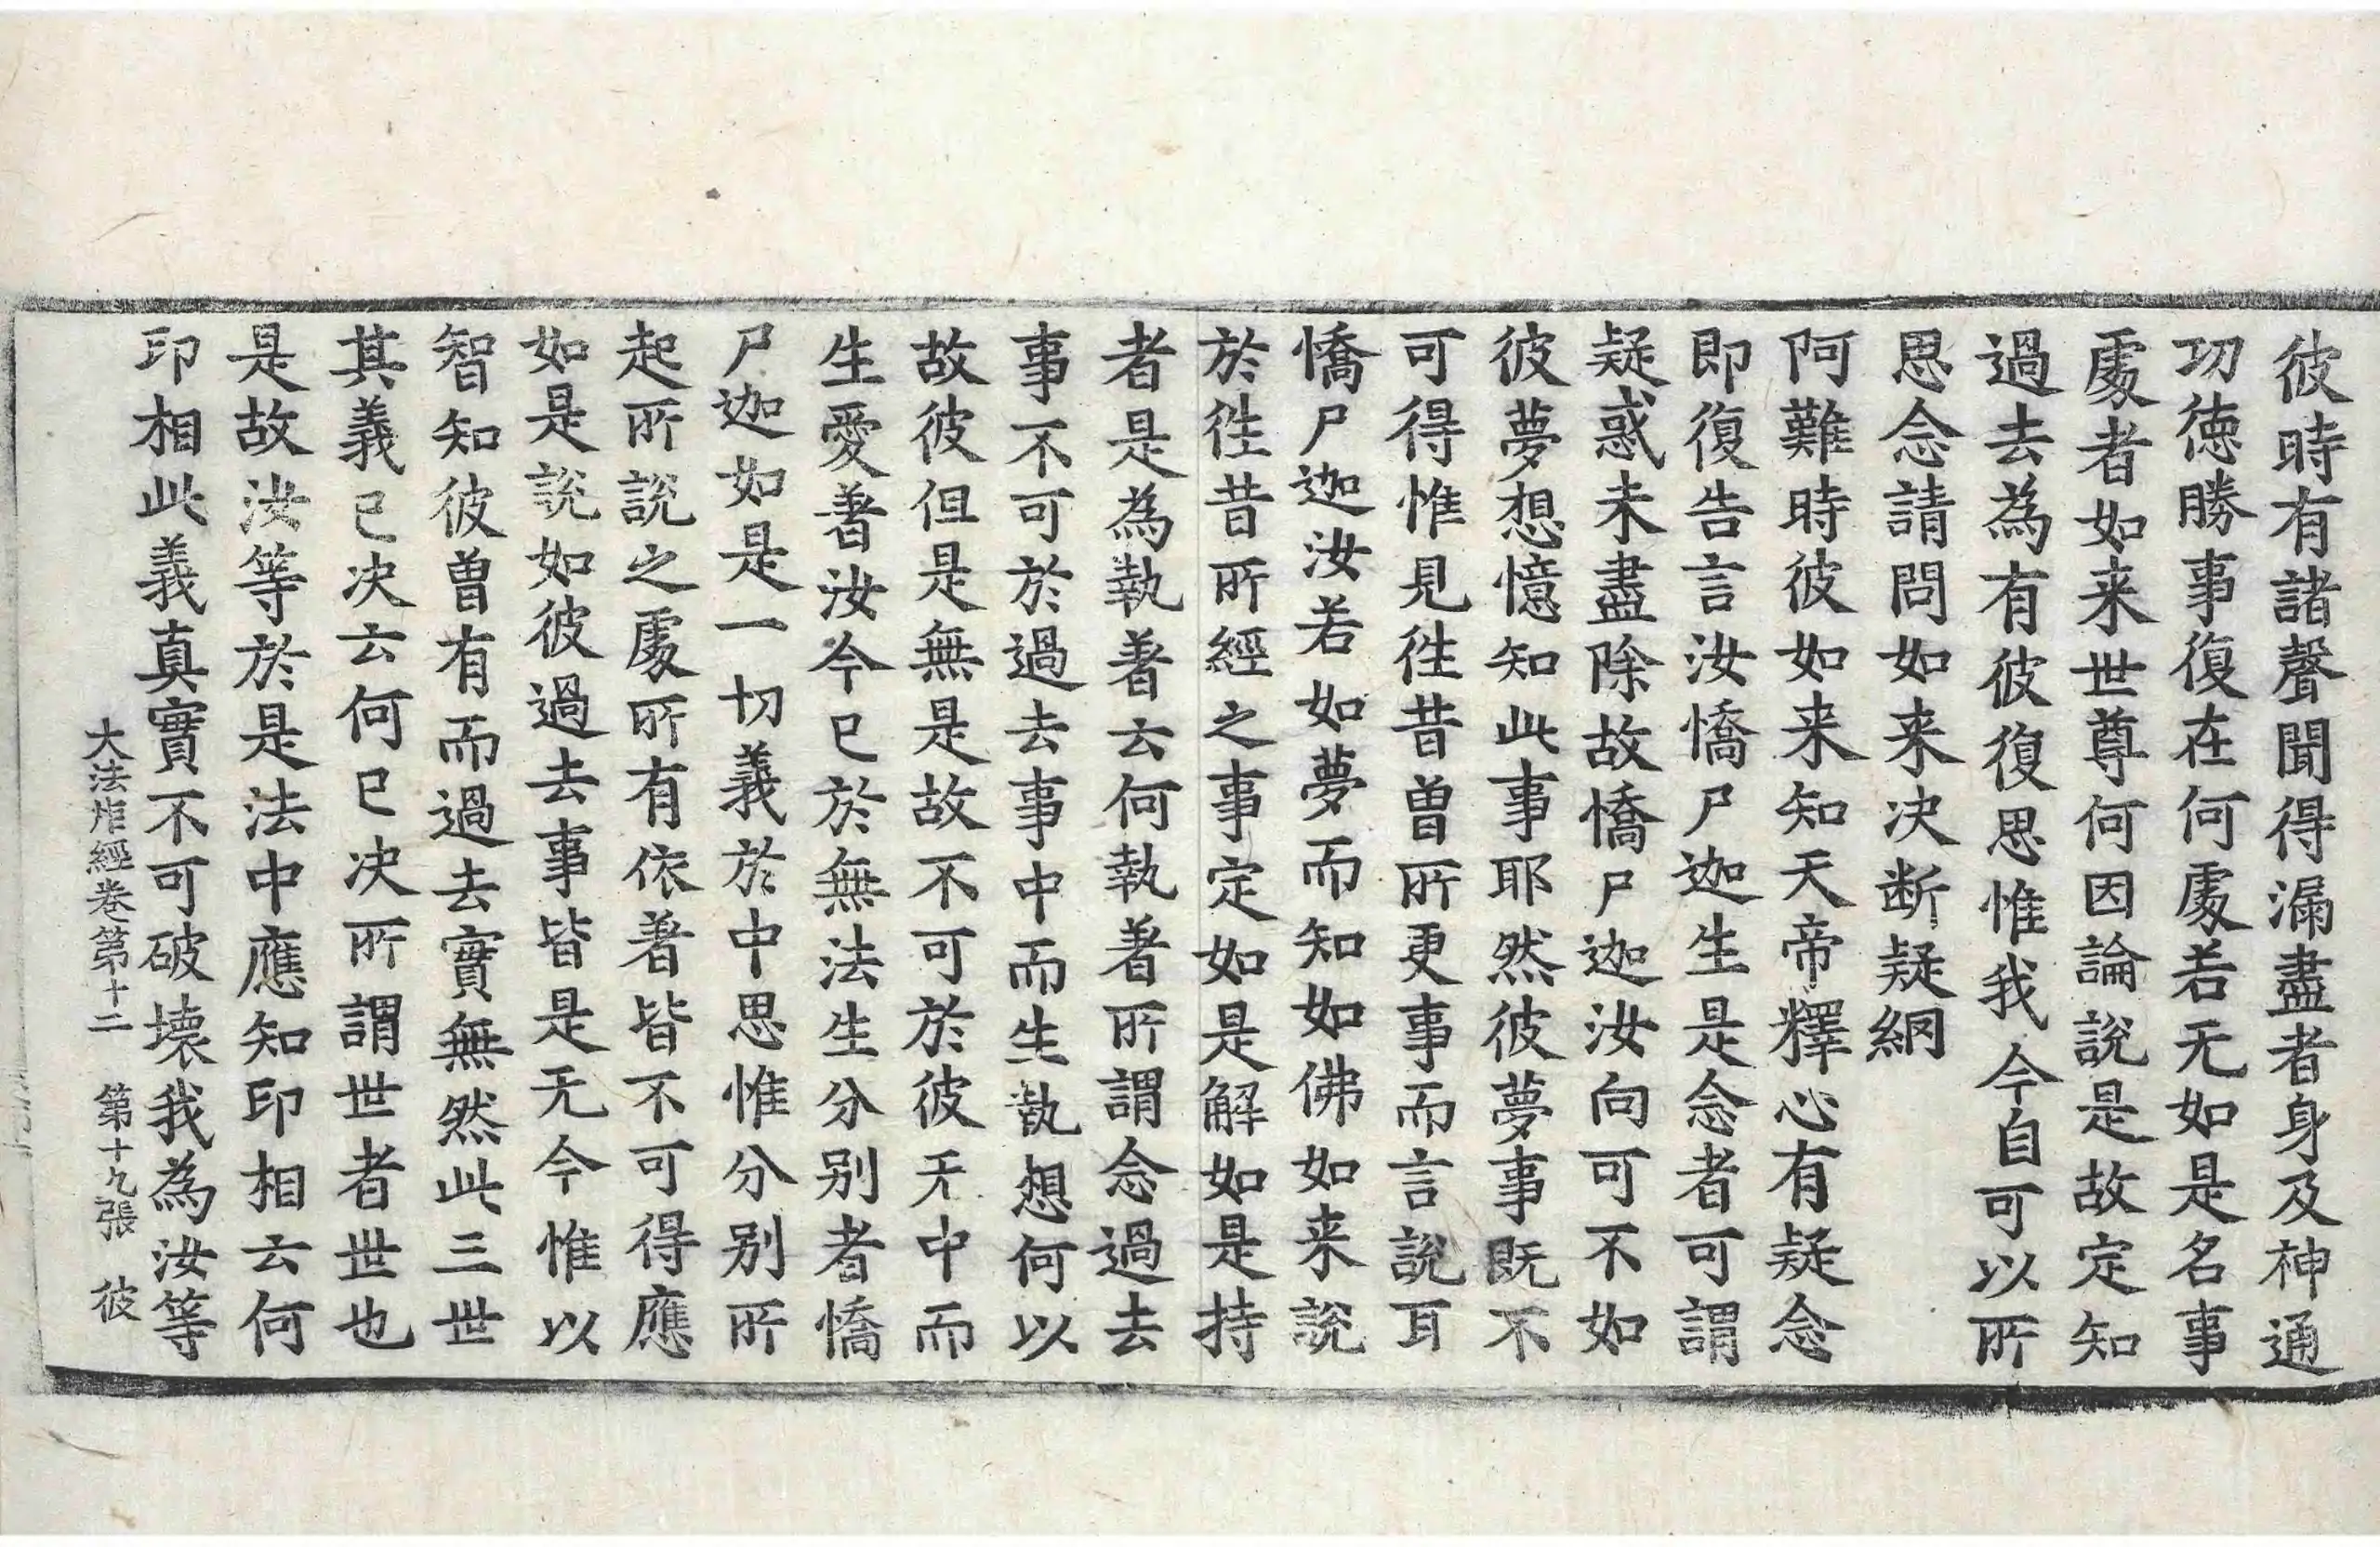 彼時有諸聲聞得漏盡者身及神通
功徳勝事復在何處若无如是名事
處者如来世尊何因論說是故定知
過去為有彼復思惟我今自可以所
思念請問如来决断疑網
阿難時彼如来知天帝釋心有疑念
即復告言汝憍尸迦生是念者可謂
疑惑未盡除故憍尸迦汝向可不如
彼夢想憶知此事耶然彼夢事既不
可得惟見往昔曽所更事而言說耳
憍尸迦汝若如夢而知如佛如来說
於往昔所經之事定如是解如是持
者是為執著云何執著所謂念過去
事不可於過去事中而生執想何以
故彼但是無是故不可於彼无中而
生愛著汝今已於無法生分别者憍
尸迦如是一切義於中思惟分别所
起所說之處所有依著皆不可得應
如是說如彼過去事皆是无今惟以
智知彼曽有而過去實無然此三世
其義已决云何已决所謂世者世也
是故汝等於是法中應知印相云何
印相此義真實不可破壊我為汝等
大法炬經卷第十二　第十九張　彼